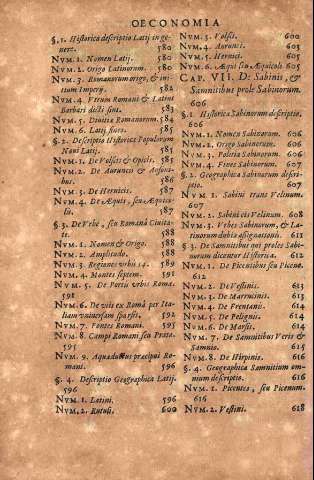 OECONOMIA
§. 1. Historica descriptio Latij in ge-
nere. 580
NVM. 1. Nomen Latij. 580
NVM. 2. Origo Latinorum. 580
NVM. 3. Romanorum origo, & ini-
tium Impery. 582
NVM. 4. Vtrum Romani & Latini
Barbari dicti sint. 583
NVM. 5. Diuitia Romanorum. 584
NVM. 6. Latij fines. 585
§. 2. Descriptio Historica Populorum
Noui Latij. 585
NVM. 1. De Volscis & Opicis. 585
NVM. 2. De Aurunci & Ausoni-
bus. 586
NVM. 3. De Hernicis. 587
NVM. 4. De Æquis, seu Æquico-
lis. 587
§. 3. De Vrbe, seu Romana Ciuita-
te. 588
NVM. 1. Nomen & Origo. 588
NVM. 2. Amplitudo. 588
NVM. 3. Regiones vrbis 14. 589
NVM. 4. Montes septem. 591
NVM. 5. De Portis vrbis Romæ.
591
NVM. 6. De viis ex Roma per Ita-
liam vniuersam sparsis. 592
NVM. 7. Pontes Romani. 595
NVM. 8. Campi Romani seu Prata.
595
NVM. 9. Aquæductus præcipui Ro-
mani. 596
§. 4. Descriptio Geographica Latij.
596
NVM. 1. Latini. 596
NVM. 2. Rutuli. 600
NVM. 3. Volsci. 600
NVM. 4. Aurunci. 603
NVM. 5. Hernici. 605
NVM. 6. Æqui seu Æquicoli. 605
CAP. VII. De Sabinis, &
Samnitibus prole Sabinorum.
606
§. 1. Historica Sabinorum descriptio.
606
NVM. 1. Nomen Sabinorum. 606
NVM. 2. Origo Sabinorum. 606
NVM. 3. Politia Sabinorum. 606
NVM. 4. Fines Sabinorum. 607
§. 2. Geographica Sabinorum descri-
ptio. 607
NVM. 1. Sabini trans Velinum.
607
NVM. 2. Sabini cis Velinum. 608
NVM. 3. Vrbes Sabinorum, & La-
tinorum dubia assignationis. 611
§. 3. De Samnitibus qui proles Sabi-
norum dicuntur Historica. 612
NVM. 1. De Picentibus seu Piceno.
612
NVM. 2. De Vestinis. 613
NVM. 3. De Marrucinis. 613
NVM. 4. De Frentanis. 613
NVM. 5. De Pelignis. 614
NVM. 6. De Marsis. 614
NVM. 7. De Samnitibus Veris &
Samnio. 615
NVM. 8. De Hirpinis. 616
§. 4. Geographica Samnitium om-
nium descriptio. 616
NVM. 1. Picentes, seu Picenum.
616
NVM. 2. Vestini. 618